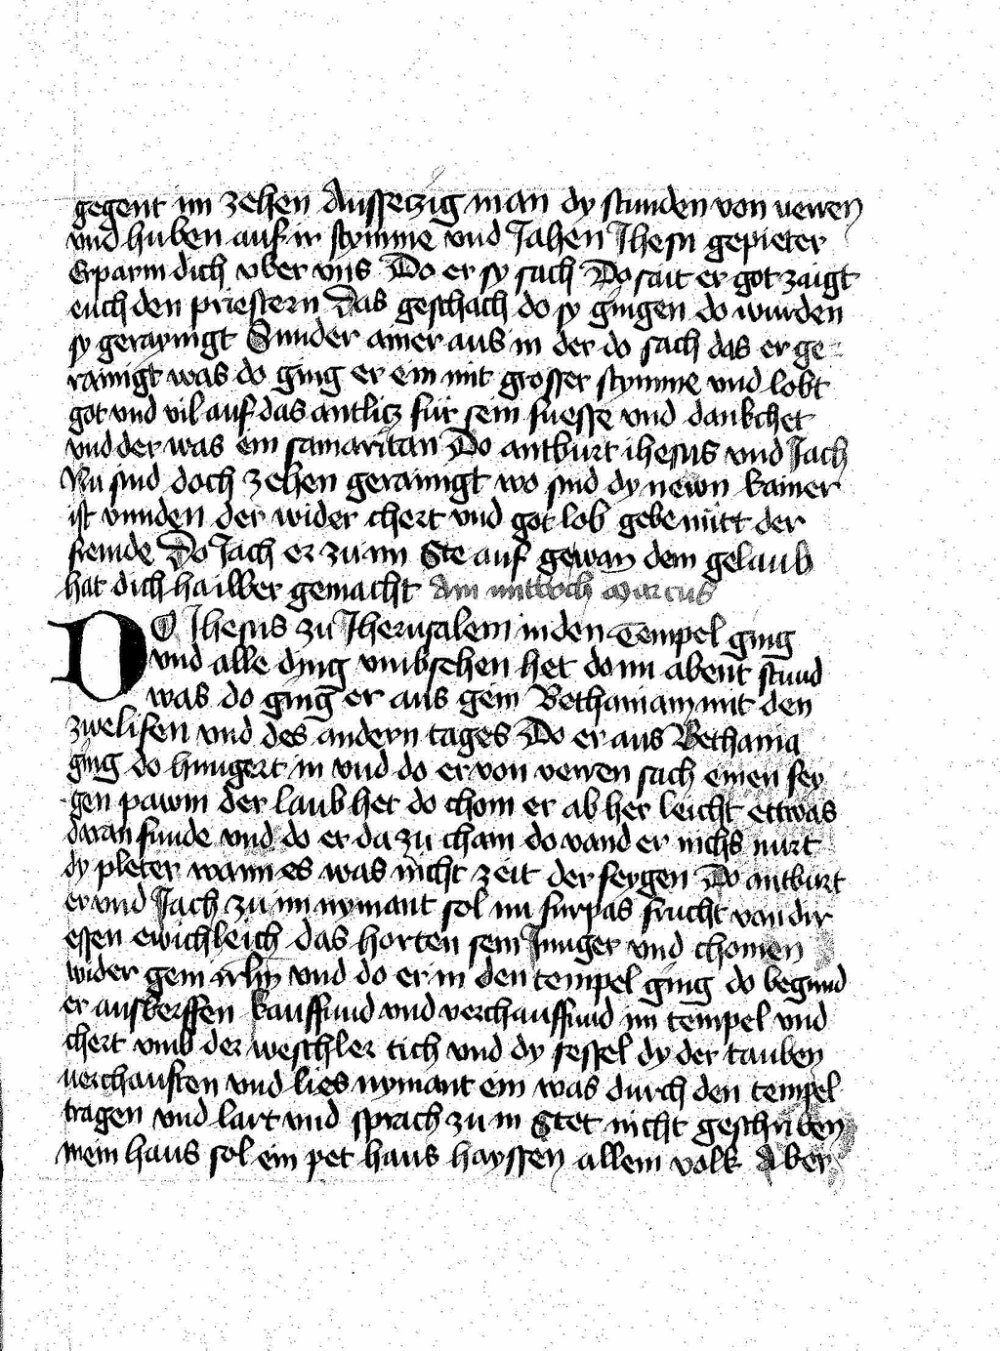 gegent im zehen Aussetzig man dy stunden von verren
vnd huben auf ir stymme vnd Jahen Jhesu gepieter
Erparm dich vber vns Do er sy sach Do sait er got zaigt
euch den priestern Das geschach do sy gingen do wurden
sy geraynigt Sunder ainer aus in der do sach das er ge
rainigt was do ging er ein mit grosser stymme vnd lobt
got vnd vil auf das antlitz fur sein fuesse vnd dankchet
vnd der was ein samaritan Do antburt ihesus vnd Jach
Nu sind doch zehen gerainigt wo sind dy newn kainer
ist vunden der wider chert vnd got lob gebe nutt der
fremde Do Jach er zu im Ste auf gewan dein gelaub
hat dich hailber gemacht Am mitboch Marcus
DO Jhesus zu Jherusalem in den Tempel ging
vnd alle ding vmbsehen het do im abent stund
was do ging er aus gein Bethaniam mit den
zwelifen vnd des andern tages Do er aus Bethania
ging do hungert in vnd do er von verren sach einen fey
gen pawm der laub het do chom er ab her leicht ettwas
daran funde vnd do er da zu cham do vand er nichs nurt
dy pleter wann es was nicht zeit der feygen Do antburt
er vnd Jach zu im nymant sol nu furpas frucht von dir
essen ewichleich das horten sein Junger vnd chomen
wider gein irlm vnd do er in den tempel ging do begund
er ausberffen kauffund vnd verchauffund im tempel vnd
chert vmb der weschler tich vnd dy sessel dy der tauben
verchauften vnd lies nymant ein was durch den tempel
tragen vnd lart vnd sprach zu in Stet nicht geschriben
mein haus sol ein pet haus hayssen allem volk Aber